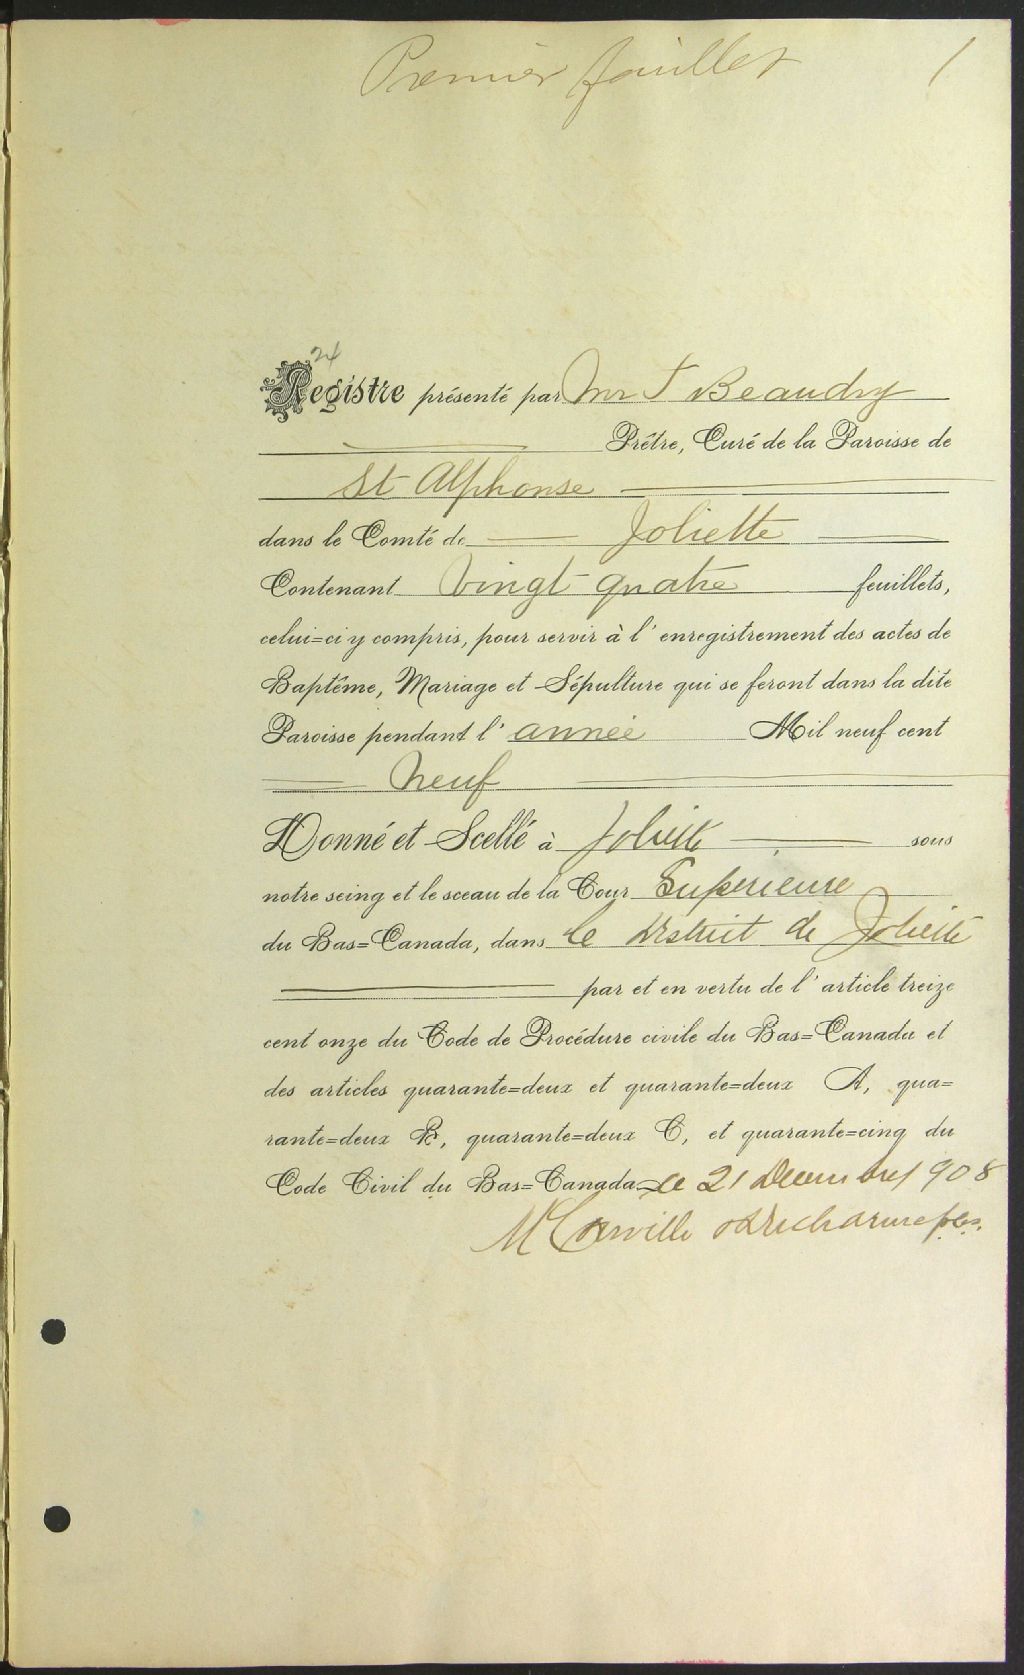 Premier feuillet 1
24
Registre présenté par Mr J Beaudry
Prêtre, Curé de la Paroisse de
St Alphonse
dans le Comté de Joliette
Contenant vingt quatre feuillets,
celui=ci y compris, pour servir à l'enregistrement des actes de
Baptême, Mariage et Sépulture qui se feront dans la dite
Paroisse pendant l'année Mil neuf cent
neuf
Donné et Scellé à Joliette sous
notre seing et le sceau de la Cour Superieure
du Bas=Canada, dans le district de Joliette
par et en vertu de l'article treize
cent onze du Code de Procédure civile du Bas=Canada et
des articles quarante=deux et quarante=deux A, qua=
rante=deux B, quarante=deux C, et quarante=cinq du
Code Civil du Bas=Canada, le 21 Decembre 1908